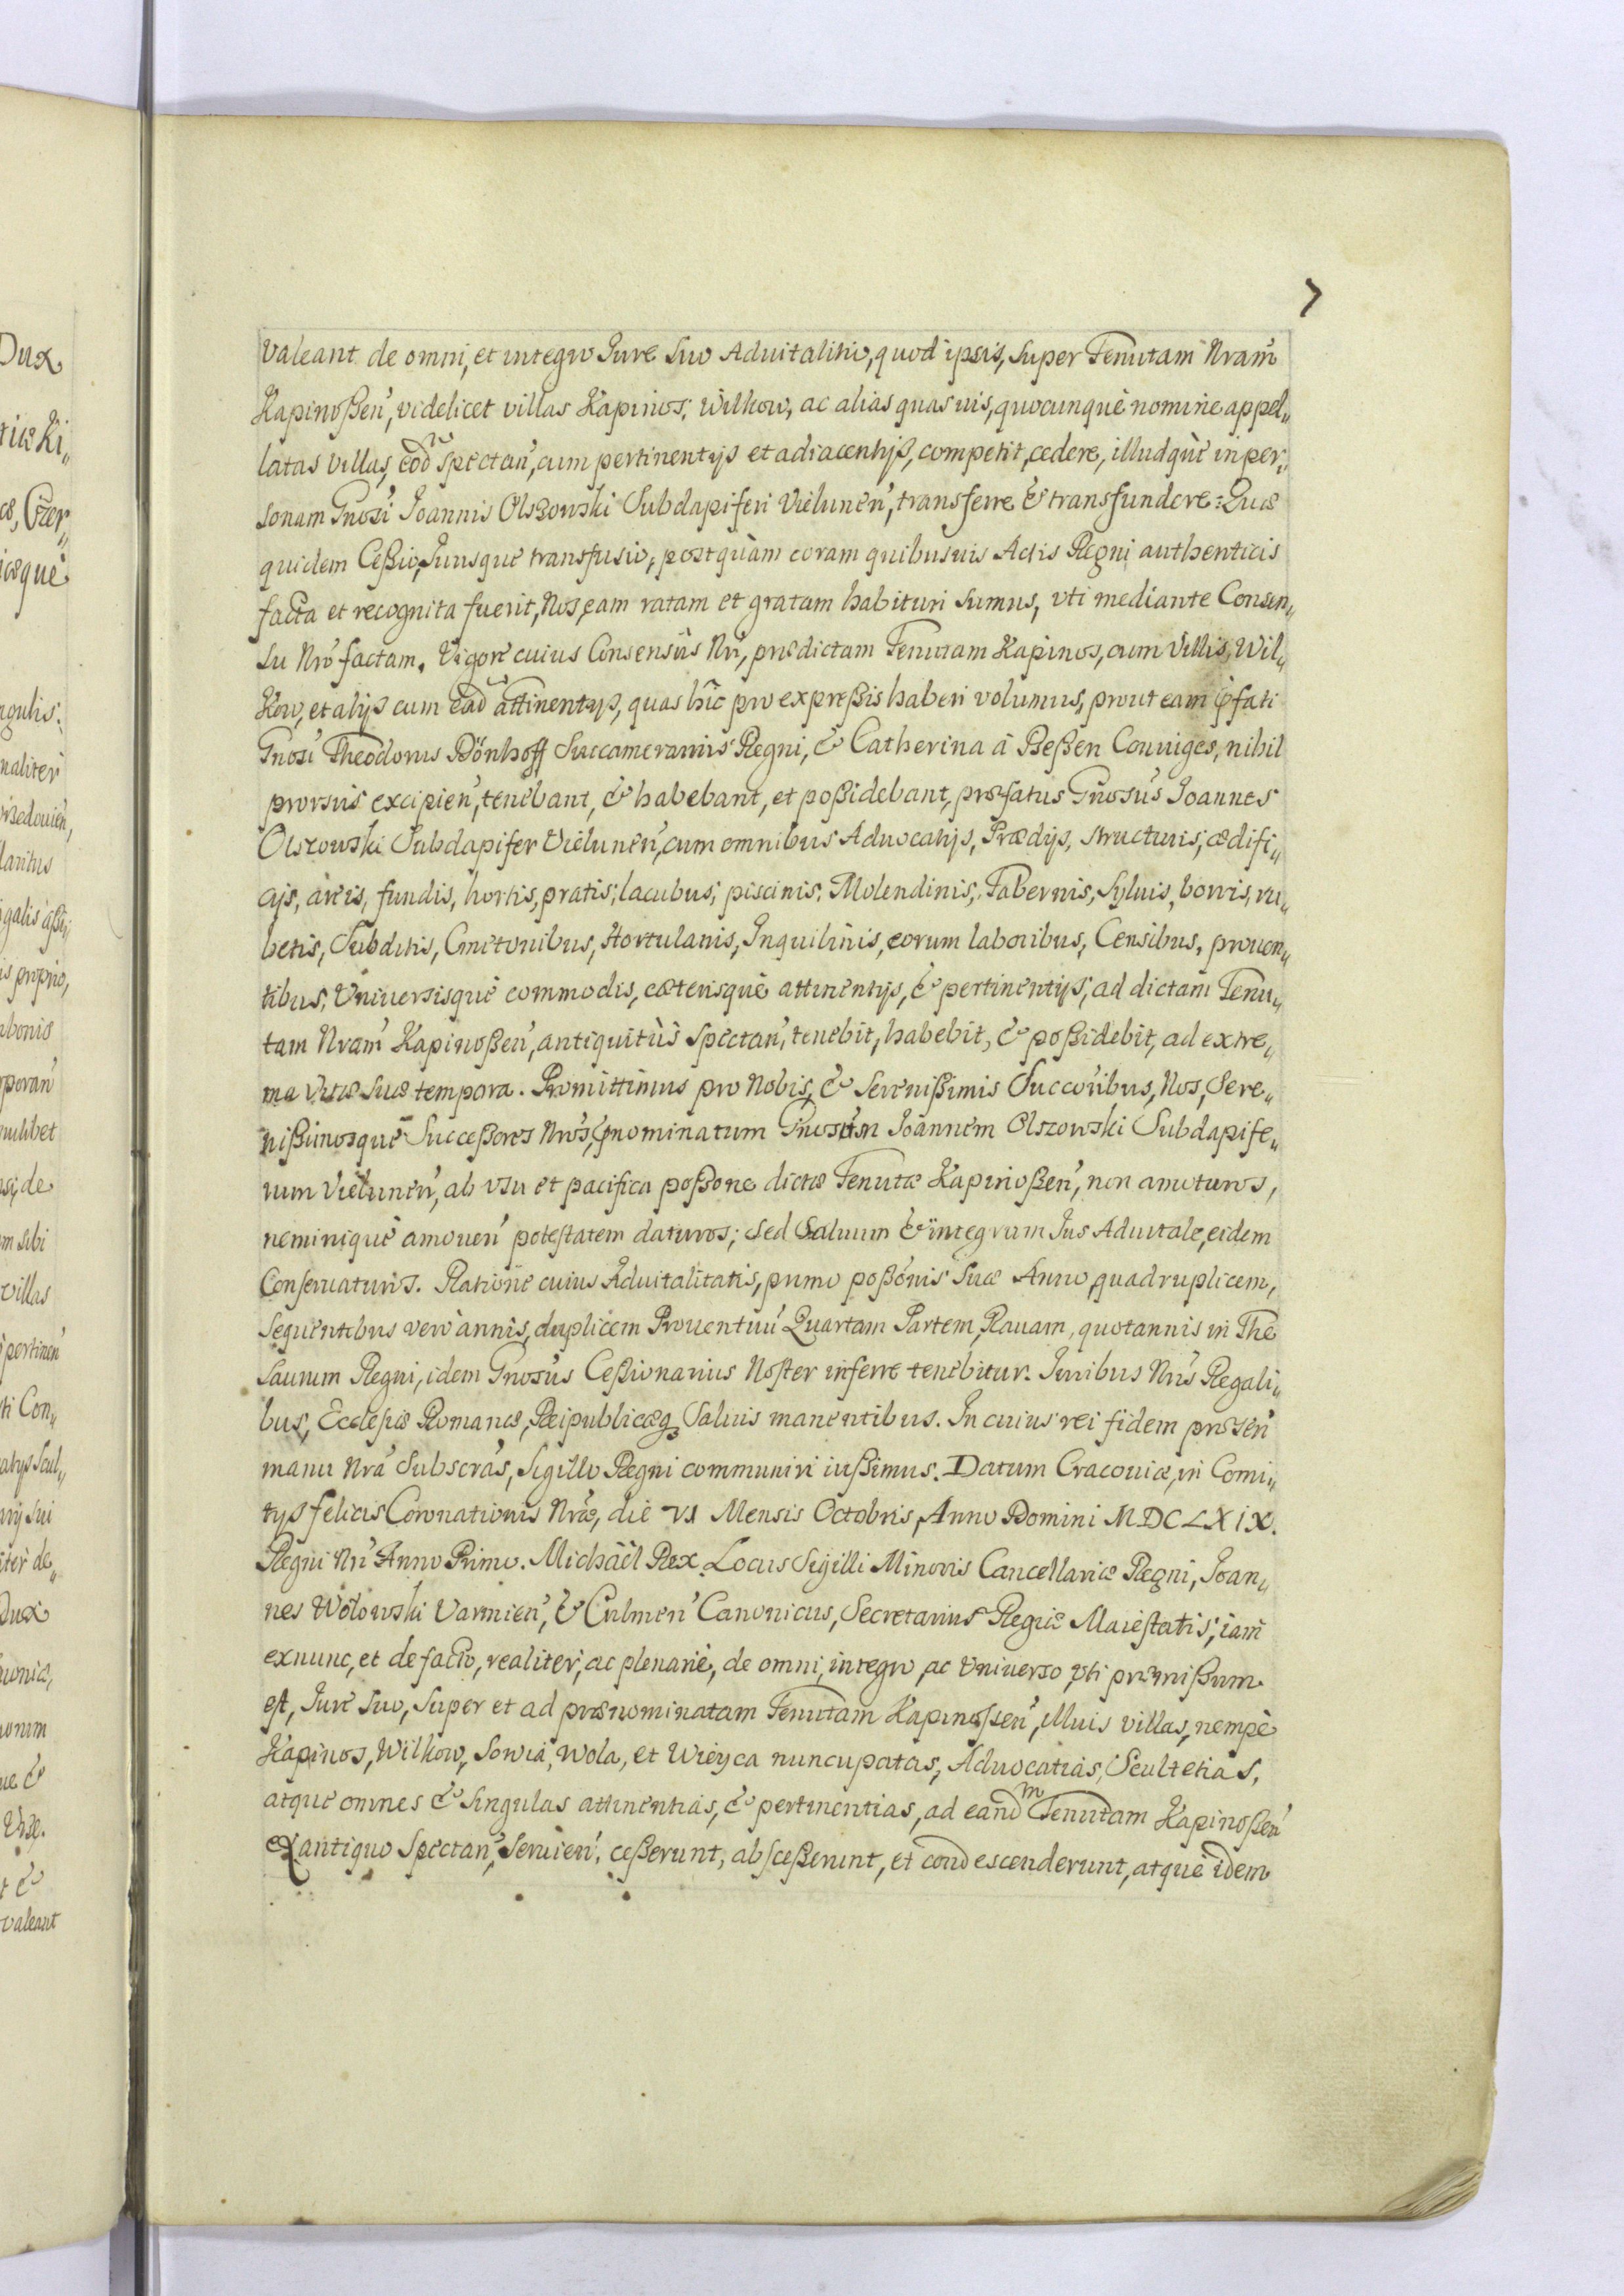 7
valeant de omni, et integro Jure suo Aduitalitio, quod ipsis, super Tenutam Nram̃
Kapinoßen̕, videlicet villas Kapinos, Wilkow, ac alias quasuis, quocunquè nomine appel„
latas villas, eod̃ spectan̕, cum pertinentijs et adiacentijs, competit, cedere, illudquè in per„
sonam Gnosi Joannis Olszowski Subdapiferi Vielunen̕, transferre & transfundere: Quæ
quidem Ceßio, Jurisque transfusio, postquàm coram quibusuis Actis Regni authenticis
facta et recognita fuerit, Nos, eam ratam et gratam habituri sumus, vti mediante Consen„
su Nrõ factam. Vigore cuius Consensûs Nri, prædictam Tenutam Kapinos, cum Villis, Wil„
kow, et alijs cum ead̃ attinentijs, quas hîc pro expreßis haberi volumus, prout eam p̃fati
Gnosi Theodorus Dönhoff Succamerarius Regni, & Catherina â Beßen Coniuges, nihil
prorsus excipien̕, tenebant, & habebant, et poßidebant, præfatus Gnosus Joannes
Olszowski Subdapifer Vielunen̕, cum omnibus Aduocatijs, Prædijs, structuris, ædifi„
cijs, areis, fundis, hortis, pratis, lacubus, piscinis, Molendinis, Tabernis, Syluis, borris, ru„
betis, Subditis, Cmetonibus, Hortulanis, Inquilinis, eorum laboribus, Censibus, prouen„
tibus, Vniuersisquè commodis, cæterisquè attinentijs, & pertinentijs, ad dictam Tenu„
tam Nram̃ Kapinoßen̕, antiquitùs spectan̕, tenebit, habebit, & poßidebit, ad extre„
ma vitæ suæ tempora. Promittimus pro Nobis, & Serenißimis Succoribus, Nos, Sere„
nißimosque Succeßores Nros, p̃nominatum Gnosum Joannem Olszowski Subdapife„
rum Vielunen̕, ab vsu et pacifica poßone dictæ Tenutæ Kapinoßen̕, non amoturos,
neminiquè amouen̕ potestatem daturos; sed Saluum & integrum Jus Aduitale, eidem
Conseruaturos. Ratione cuius Aduitalitatis, primo poßonis suæ Anno, quadruplicem,
sequentibus verò annis, duplicem Prouentuũ Quartam Partem, Rauam, quotannis in The
saurum Regni, idem Gnosus Ceßionarius Noster inferre tenebitur. Juribus Nris Regali„
bus, Ecclesiæ Romanæ, Reipublicæq̃ Saluis manentibus. In cuius rei fidem præsen̕
manu Nra Subscras, Sigillo Regni communiri iußimus. Datum Cracouiæ, in Comi„
tijs felicis Coronationis Nræ, die VI Mensis Octobris, Anno Domini MDCLXIX.
Regni Nri Anno Primo. Michaël Rex. Locus Sigilli Minoris Cancellariæ Regni, Joan„
nes Wołowski Varmien̕, & Culmen̕ Canonicus, Secretarius Regiæ Maiestatis, iam
exnunc, et de facto, realiter, ac plenariè, de omni, integro, ac Vniuerso, vti præmißum
est, Jure suo, super et ad prænominatam Tenutam Kapinoßen̕, illius villas, nempè
Kapinos, Wilkow, Sowia, Wola, et Wieyca nuncupatas, Aduocatias, Scultetias,
atque omnes & singulas attinentias, & pertinentias, ad eand̃m Tenutam Kapinoßen̕
ex antiquo Spectan̕, seruien̕, ceßerunt, absceßerunt, et condescenderunt, atquè idem